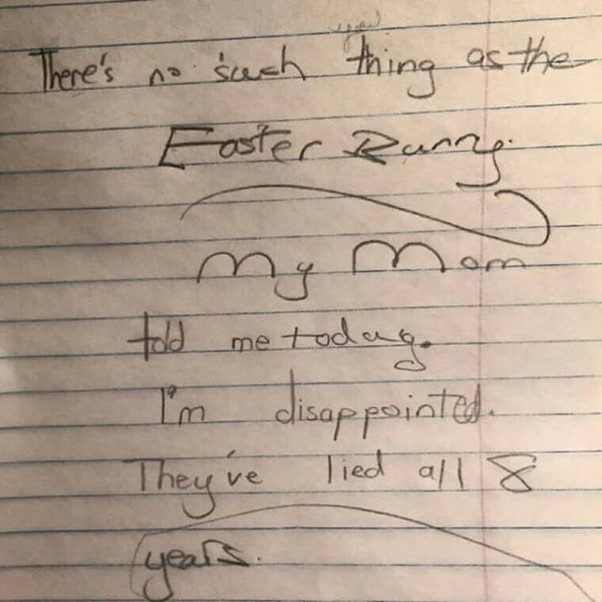 There's no such thing as the
Easter Bunny.
My Mom
told me today.
I'm disappointed.
They've lied all 8
years.